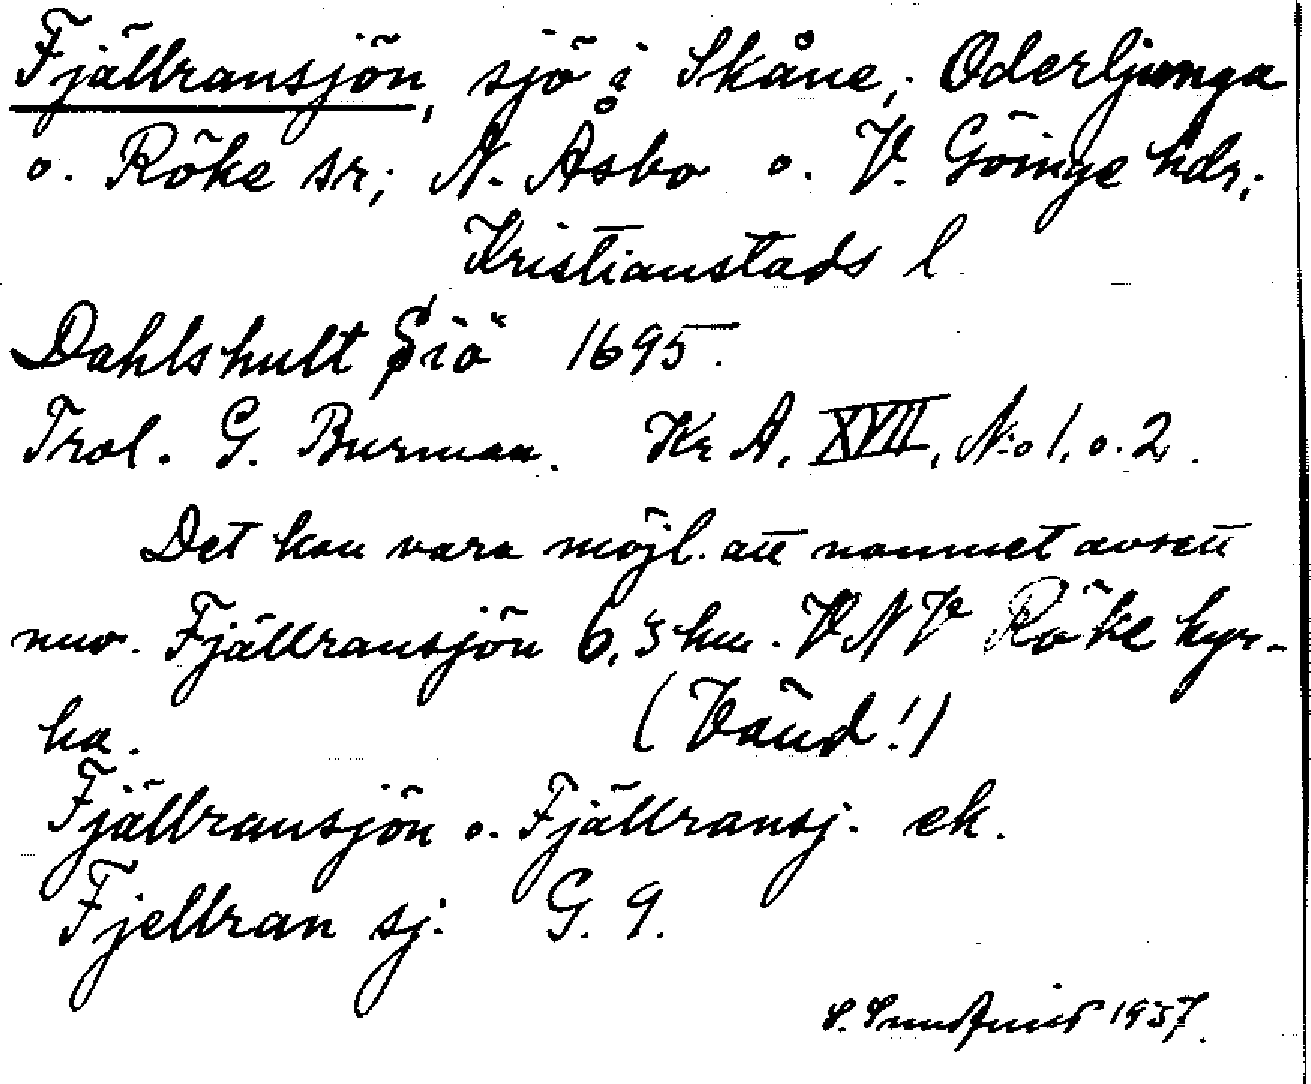 Fjällransjön, sjö i Skåne; Oderljunga
o. Röke sr; N. Åsbo o. V. Göinge hdr;
Kristianstads l
Dahlshult Siö 1695.
Trol. G. Burman. Kr A. XVII, N:o 1. o. 2.
Det kan vara möjl. att namnet avsett
nuv. Fjällransjön 6,5 km. VNV Röke kyr-
ka. (Vänd!)
Fjällransjön o. Fjällransj. ek.
Fjellran sj. G. 9.
S. 1957.